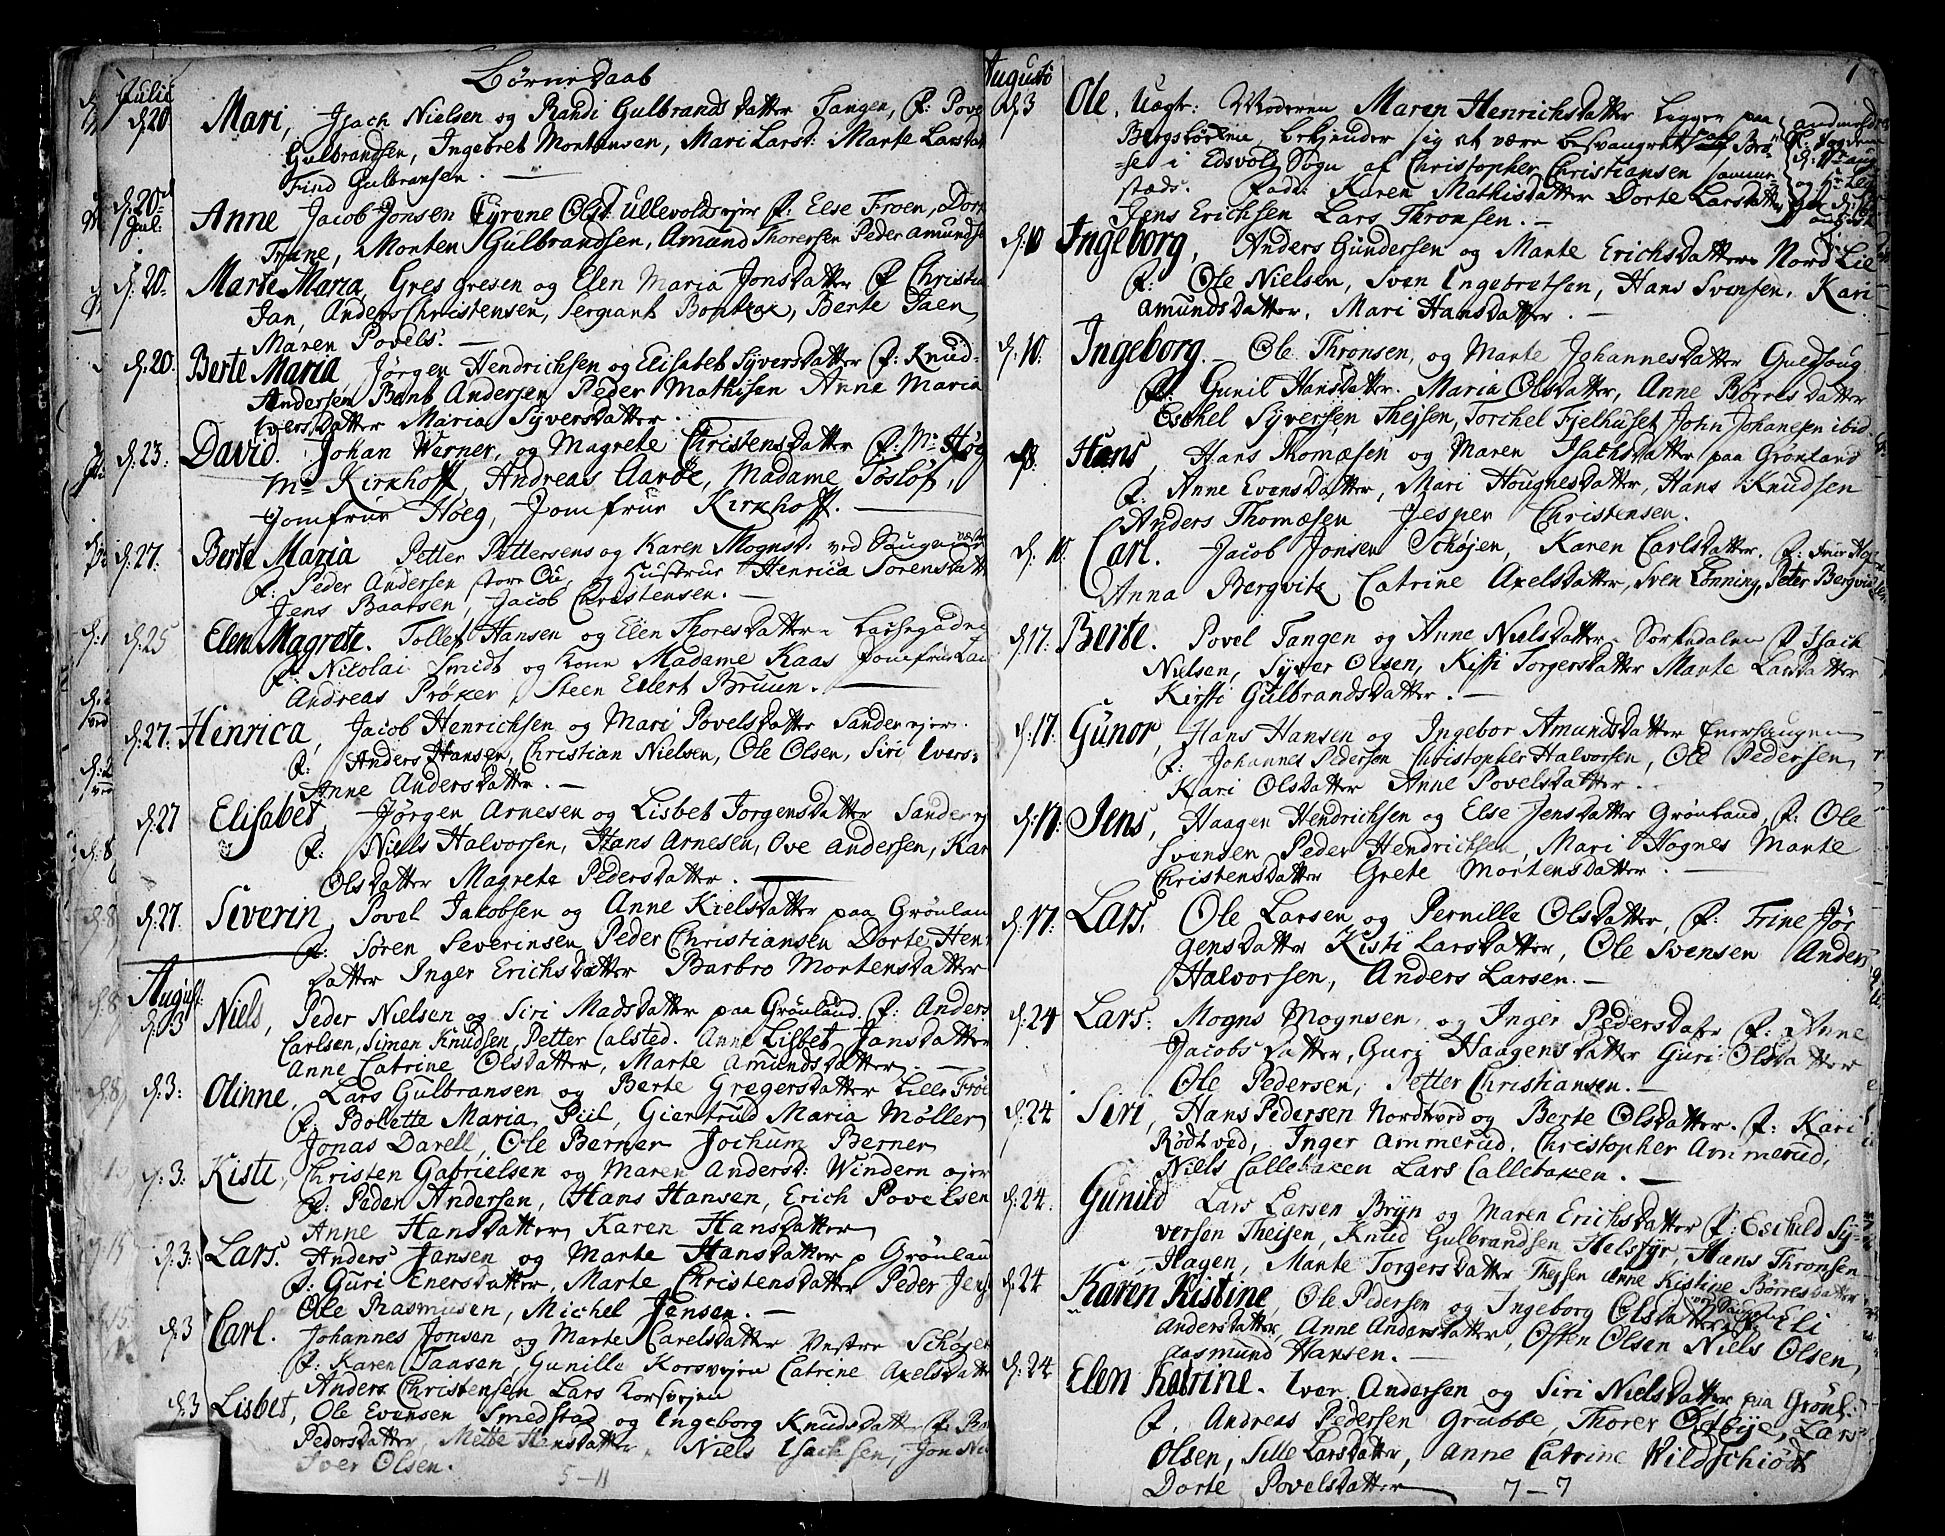 Børne Daab
Julii
d: 20 Mari, Isach Nielsen og Randi Gulbrands datter Tangen, F: Pove
Gulbrandsen, Ingebret Mortensen, Mari Larsd: Marte Larsdat
Find Gulbransen. —
d: 20 Jul: Anne Jacob Jonsen Cyrene Olsd: Ullevoldsejer F: Else Froen, Dort
Trane, Morten Gulbrandsen, Amund Thorersen Peder Amundse
d: 20. Marte Maria, Gres gresen og Elen Maria Jonsdatter F Christia
Jan, Anders Christensen, Sergiant Bontkox, Berte Taen,
Maren Povels: —
d: 20. Berte Maria, Jørgen Hendrichsen og Elisabet Syversdatter F: Knud
Andersen Bent Andersen Peder Mathisen Anne Maria
Ivers datter Maria Syversdatter.
d: 23. David. Johan Werner, og Magrete Christensdatter F: Mr Høeg
Mr Kirkhoff, Andreas Aarøe, Madame Tosløf,
Jomfrue Høeg, Jomfrue Kirkhoff. —
d: 27. Berte Maria Petter Pettersens og Karen Mognsd: ved Saugene
F: Peder Andersen store Ou, og Hustrue Henrica Sørensdatt
Jens Baarsen, Jacob Christensen. —
d: 25 Elen Magrete. Tollef Hansen og Elen Thoresdatter i Lassegaden
F: Nicolai Smidt og kone Madame Kaas Jomfrue Lau
Andreas Prøker Steen Edert Bruun. —
d: 27. Henrica, Jacob Henrichsen og Mari Povelsdatter Sander ejer.
F: Anders Hansen, Christian Nielsen, Ole Olsen, Siri Ivers:
Anne Andersdatter. —
d: 27 Elisabet, Jørgen Arnesen og Lisbet Jorgensdatter Sander ej
F: Niels Halvorsen, Hans Arnesen, Ove Andersen, Kar
Olsdatter Magrete Pedersdatter. —
d: 27. Severin, Povel Jacobsen og Anne Kielsdatter paa Grønlan
F: Søren Severinsen Peder Christiansen Dorte Hen
datter Inger Erichsdatter Barbro Mortensdatter
August:
d: 3 Niels, Peder Nielsen og Siri Madsdatter paa Grønland. F: Anders
Carlsen, Simen Knudsen, Petter Calsted. Anne Lisbet Jansdatter
Anne Catrine Olsdatter, Marte Amundsdatter. —
d: 3: Olinne, Lars Gulbransen og Berte Gregersdatter Lille Frøe
F: Bolette Maria Piil, Giertrud Maria Møller,
Jonas Darell, Ole Berner Jochum Berner
d: 3: Kiste, Christen Gabrielsen og Maren Andersd: Windern ejer
F: Peder Andersen, Hans Hansen, Erich Povelsen
Anne Hansdatter, Karen Hansdatter
d: 3: Lars. Anders Jansen og Marte Hansdatter p Grønlan
F: Guri Enersdatter, Marte Christensdatter Peder Jens
Ole Rasmusen, Michel Jensen. —
d: 3 Carl. Johannes Jonsen og Marte Carelsdatter Vestre Schøjen
F: Karen Taasen, Gunille Korsvejen Catrine Axelsdatt
Anders Christensen Lars Korsvejen
d: 3 Lisbet, Ole Evensen Smedstad og Ingeborg Knudsdatter F:
Pedersdatter, Mette Hensdatter, Niels Isachsen, Jon Ni
Iver Olsen.
5–11
1
Augusti
d: 3 Ole, Uægte: Moderen Maren Henrichsdatter Ligger paa
Bergstøeren bekjender sig at være besvangret af Bø
se i Edsvolds Sogn af Christopher Christiansen samme
stæds. Fadd: Karen Mathisdatter Dorte Larsdatter,
Jens Erichsen Lars Thronsen. —
d: 10 Ingeborg, Anders Gundersen og Marte Erichsdatter Nord Lie
F: Ole Nielsen, Sven Ingebretsen, Hans Svensen, Kari
Amundsdatter, Mari Hansdatter. —
d: 10: Ingeborg. Ole Thronsen, og Marte Johannesdatter Guldsoug
F: Gunil Hansdatter. Maria Olsdatter, Anne Børresdatter
Eschel Syversen Thejsen, Torchel Fjelhuset John Johansen ibid.
Hans, Hans Thomæsen og Maren Isachsdatter paa Grønland
F: Anne Evensdatter, Mari Hougnesdatter, Hans Knudsen
Anders Thomæsen Jesper Christensen.
d: 10. Carl. Jacob Jonsen Schøjen, Karen Carlsdatter. F:
Anna Bergvitz Catrine Axelsdatter, Sven Lønning, Peter Bergvid
d: 17: Berte. Povel Tangen og Anne Nielsdatter Sørkedalen F: Isach
Nielsen, Syver Olsen, Kisti Torgersdatter Marte Larsdatter
Kirsti Gulbrandsdatter. —
d: 17. Gunor Hans Hansen og Ingebor Amundsdatter Enerhaugen
F: Johannes Pedersen Christopher Halvorsen, Ole Pedersen,
Kari Olsdatter Anne Povelsdatter.
d: 17: Jens, Haagen Hendrichsen og Else Jensdatter Grønland, F: Ole
Svensen Peder Hendrichsen, Mari Hognes Marte
Christensdatter Grete Mortensdatter. —
d: 17. Lars, Ole Larsen og Pernille Olsdatter, F: Trine Jør
gensdatter Kisti Larsdatter, Ole Svensen Anders
Halvorsen, Anders Larsen. —
d: 24 Lars: Mogns Mognsen, og Inger Pedersdatr F: Anne
Jacobsdatter, Guri Haagensdatter Guri Olsdatter
Ole Pedersen, Petter Christiansen. —
d: 24 Siri, Hans Pedersen Nordtved og Berte Olsdatter. F: Kari
Rødtved, Inger Ammerud, Christopher Ammerud,
Niels Callebaken Lars Callebaken. —
d: 24. Gunild Lars Larsen Bryn og Maren Erichsdatter F: Eschild Sy:
versen Thejsen, Knud Gulbrandsen Helsfyr, Hans Thronsen
Hagen, Marte Torgersdatter Thejsen Anne Kistine Børresdatter
d: 24 Karen Kistine, Ole Pedersen og Ingeborg Olsdatter F: Eli
Andersdatter, Anne Andersdatter, Often Olsen Niels Olsen,
Aasmund Hansen. —
d: 24 Elen Katrine. Iver Andersen og Siri Nielsdatter paa Grønl:
F, Andreas Pedersen Grubbe, Thorer Østbye, Lars
Olsen, Sille Larsdatter, Anne Catrine Wildschiødt
Dorte Povelsdatter
7–7